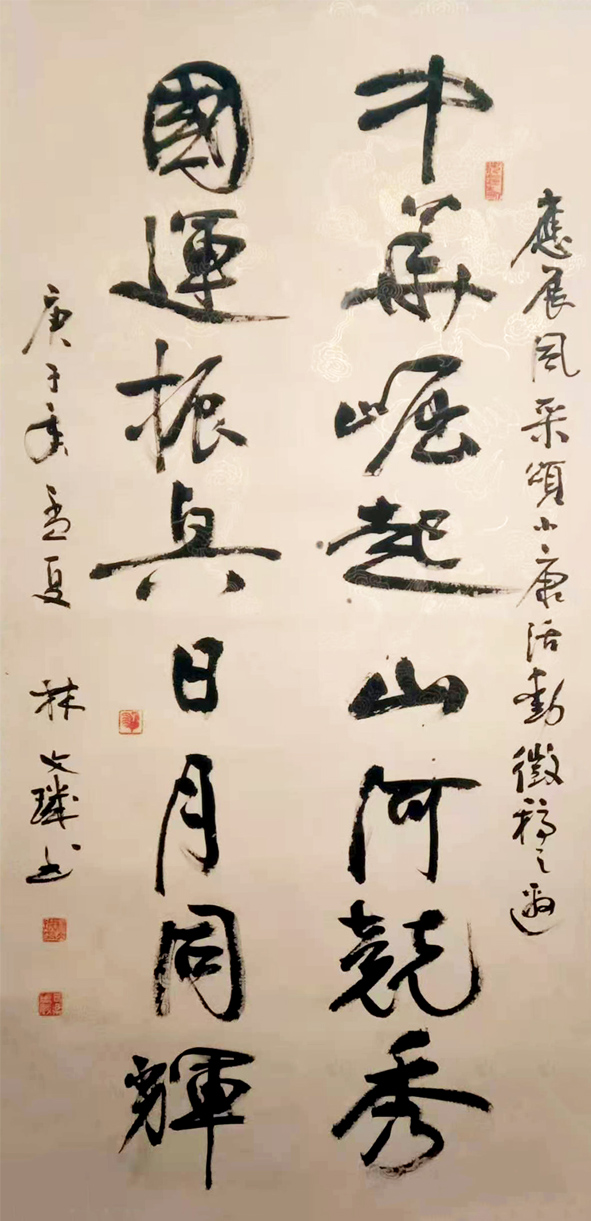 應展風采頌小康活動徵稿之邀
中華崛起山河競秀
國運振興日月同輝
庚子年孟夏 林文璘书